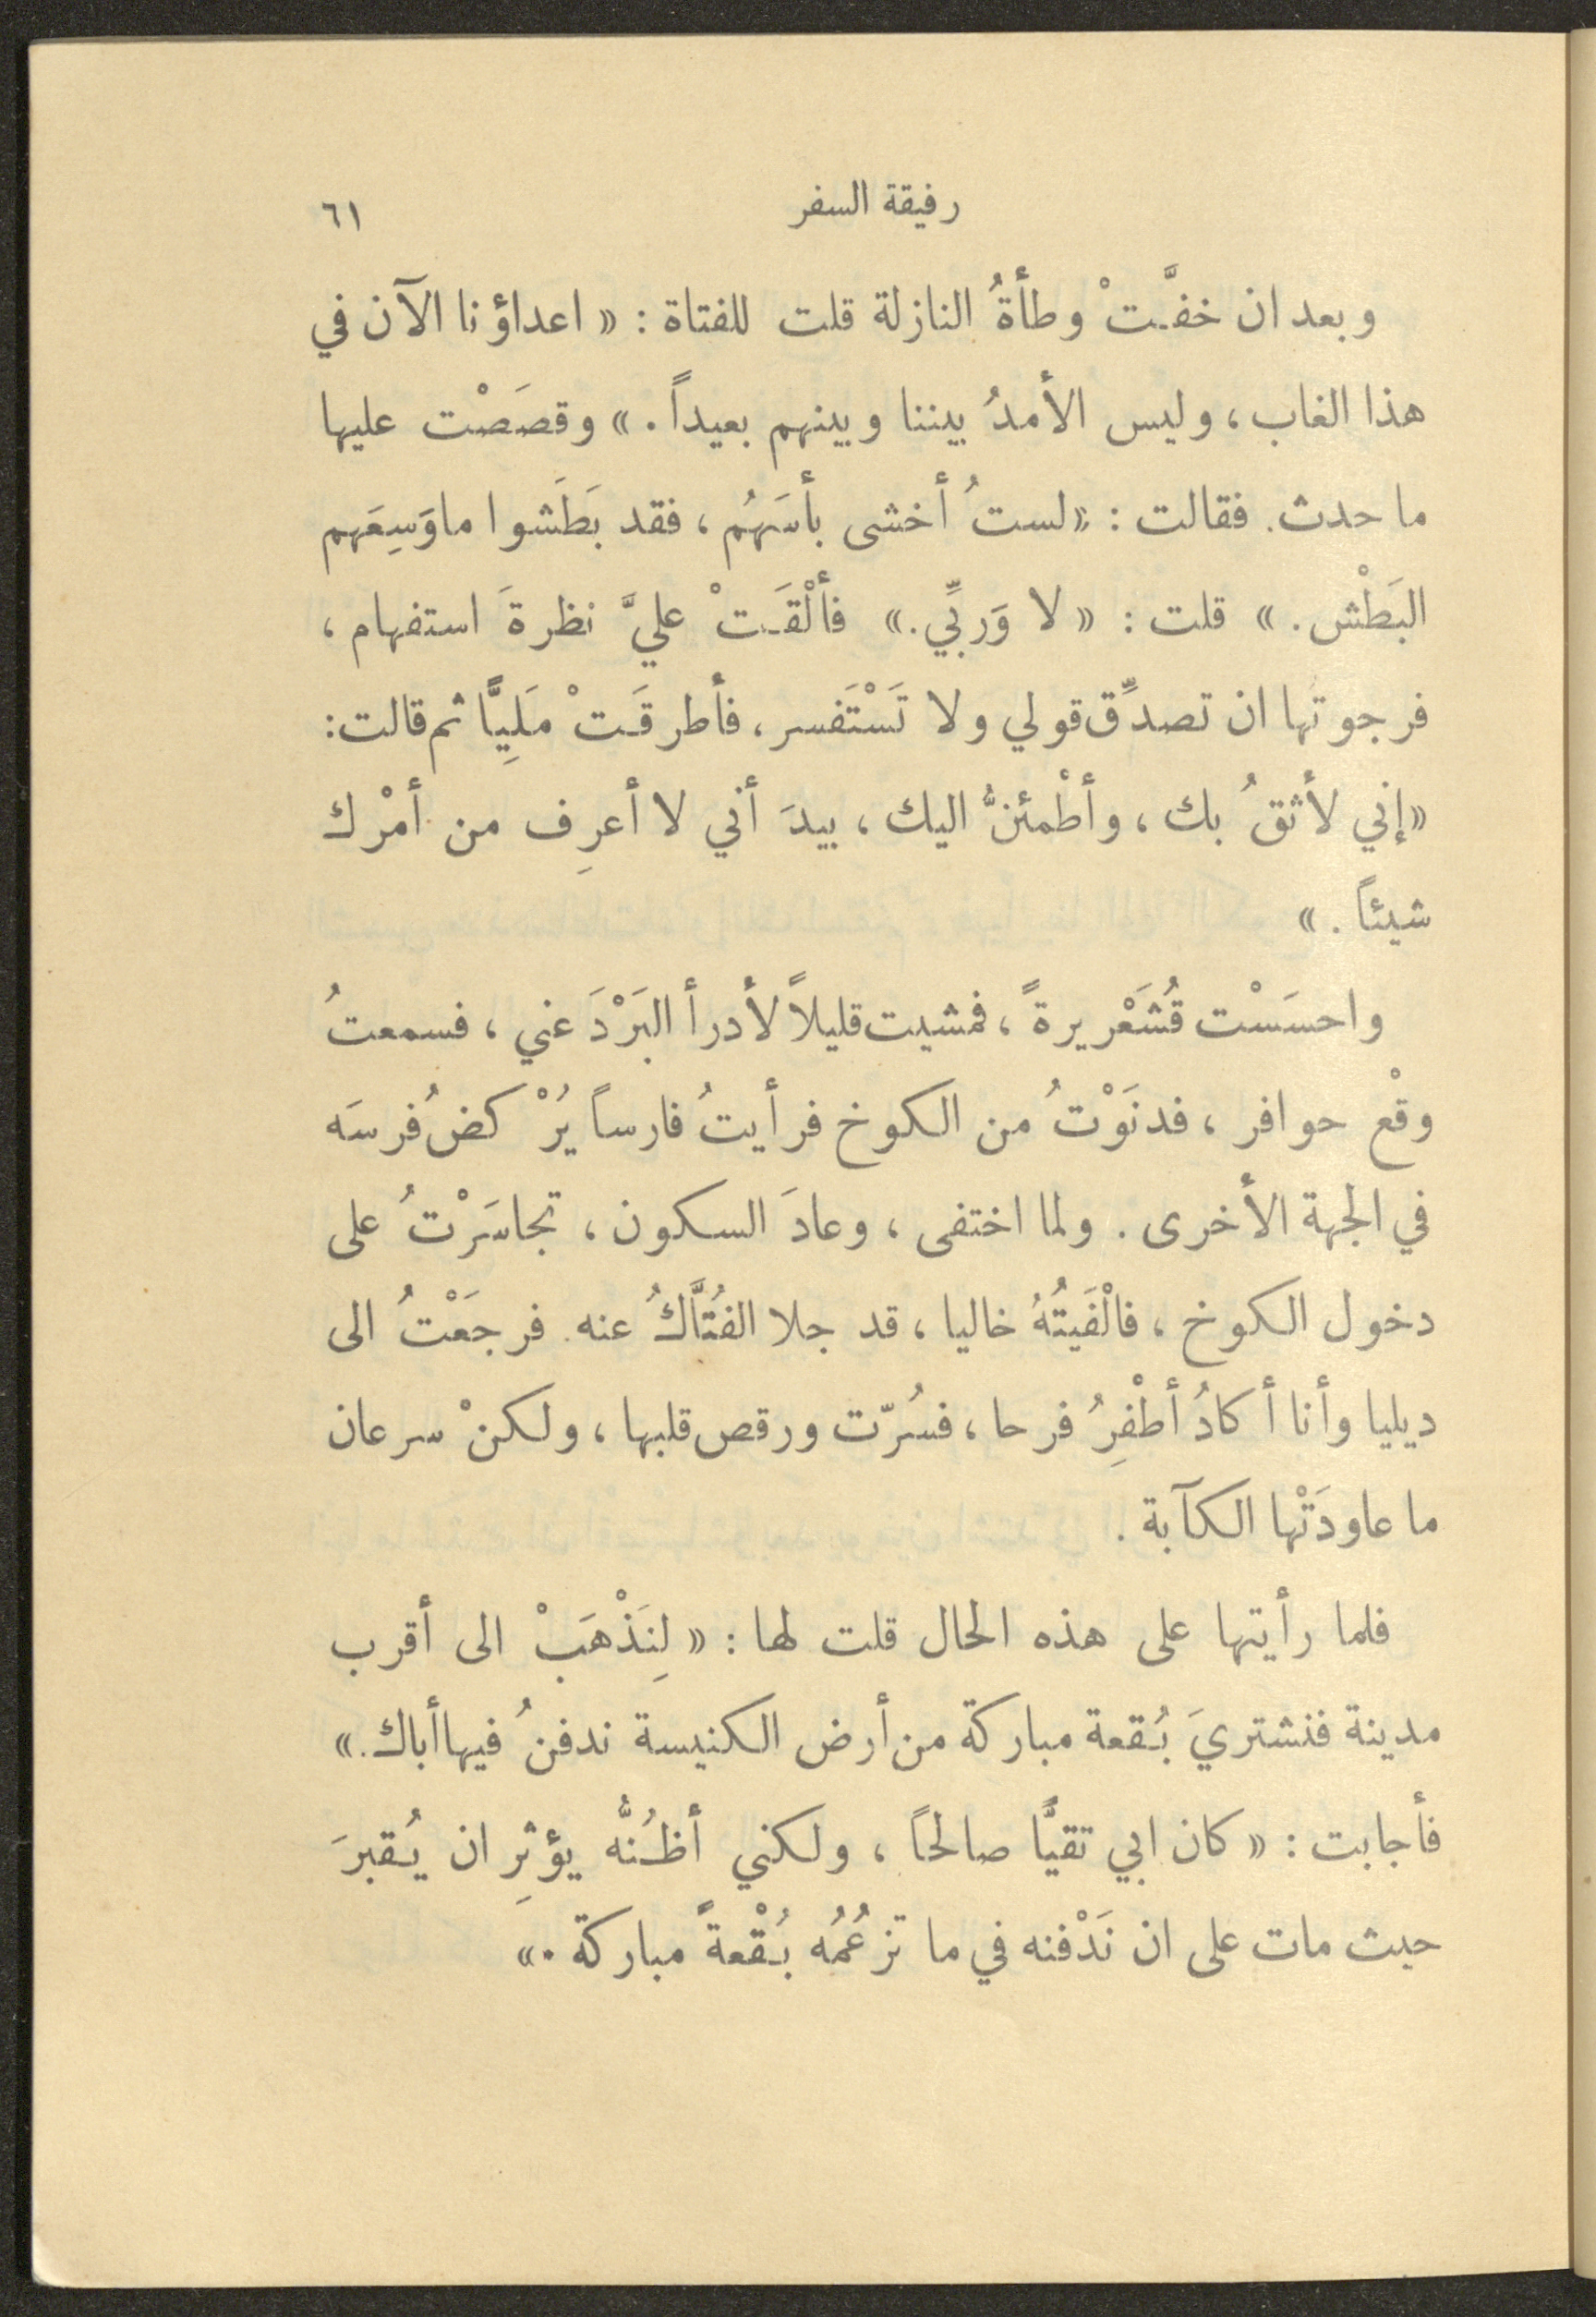 رفيقة السفر ٦١
وبعد ان خفَّتْ وطأةُ النازلة قلت للفتاة : « اعداؤنا الآن في
هذا الغاب ، وليس الأمدُ بيننا وبينهم بعيداً . » وقصَصْت عليها
ما حدث . فقالت : « لستُ أخشى بأسَهُم ، فقد بَطَشوا ما وَسِعَهم
البَطْش . » قلت : « لا وَربِّي . » فألْقَتْ عليَّ نظرةَ استفهام ،
فرجوتها ان تصدِّق قولي ولا تَسْتَفسر ، فأطرقَتْ مَلِيًّا ثم قالت :
« إني لأثقُ بك ، وأطْمئنُّ اليك ، بيدَ أني لا أعرِف من أمْرك
شيئاً . »
واحسَسْت قُشَعْريرةً ، فمشيت قليلاً لأدرأ البَرْدَ عني ، فسمعتُ
وقْع حوافر ، فدنَوْتُ من الكوخ فرأيتُ فارساً يُرْكضُ فرسَه
في الجهة الأخرى . ولما اختفى ، وعادَ السكون ، تجاسَرْتُ على
دخول الكوخ ، فالْفَيتُهُ خاليا ، قد جلا الفُتَّاكُ عنه . فرجَعْتُ الى
ديليا وأنا أكادُ أطْفِرُ فرحا ، فسُرّت ورقص قلبها ، ولكنْ سرعان
ما عاودَتْها الكآبة .
فلما رأيتها على هذه الحال قلت لها : « لِنَذْهَبْ الى أقرب
مدينة فنشتريَ بُقعة مباركة من أرض الكنيسة ندفنُ فيها أباك . »
فأجابت : « كان ابي تقيًّا صالحاً ، ولكني أظُنُّه يؤثِر ان يُقبرَ
حيث مات على ان نَدْفنه في ما تزعُمُه بُقْعةً مباركة . »